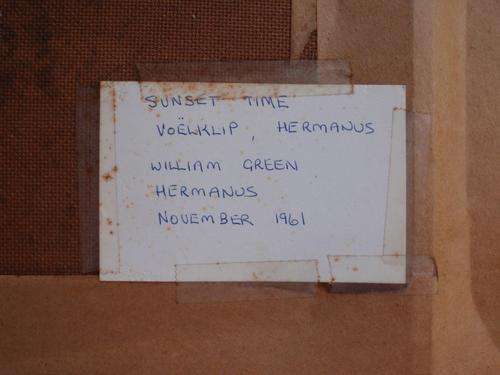 SUNSET TIME
VOËLKLIP, HERMANUS
WILLIAM GREEN
HERMANUS
NOVEMBER 1961